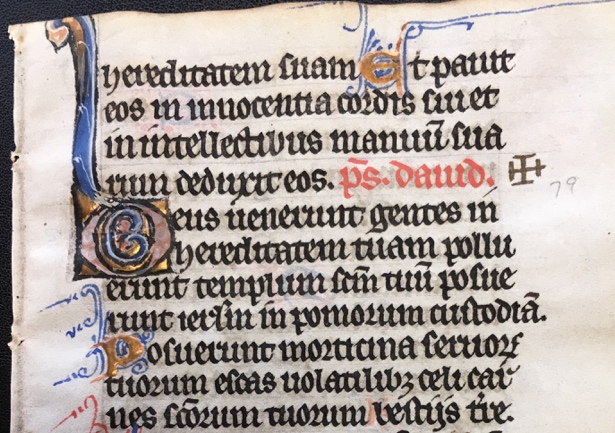 hereditatem suam Et pauit
eos in innocentia cordis sui et
in intellectibus manuū sua
rum deduxit eos. p̄s. dauid.
79
Deus uenerunt gentes in
hereditatem tuam pollu
erunt templum sc̄m tuū posue
runt ierl̄m in pomorum custodiā.
Posuerunt morticina seruorꝝ
tuorum escas uolatilibꝫ celi car
nes sc̄orum tuorum bestijs t̄re.